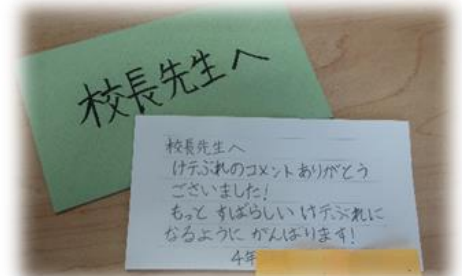 校長先生へ
校長先生へ
けテぶれのコメントありがとう
ございました!
もっと すばらしい けテぶれに
なるように がんばります!
4年